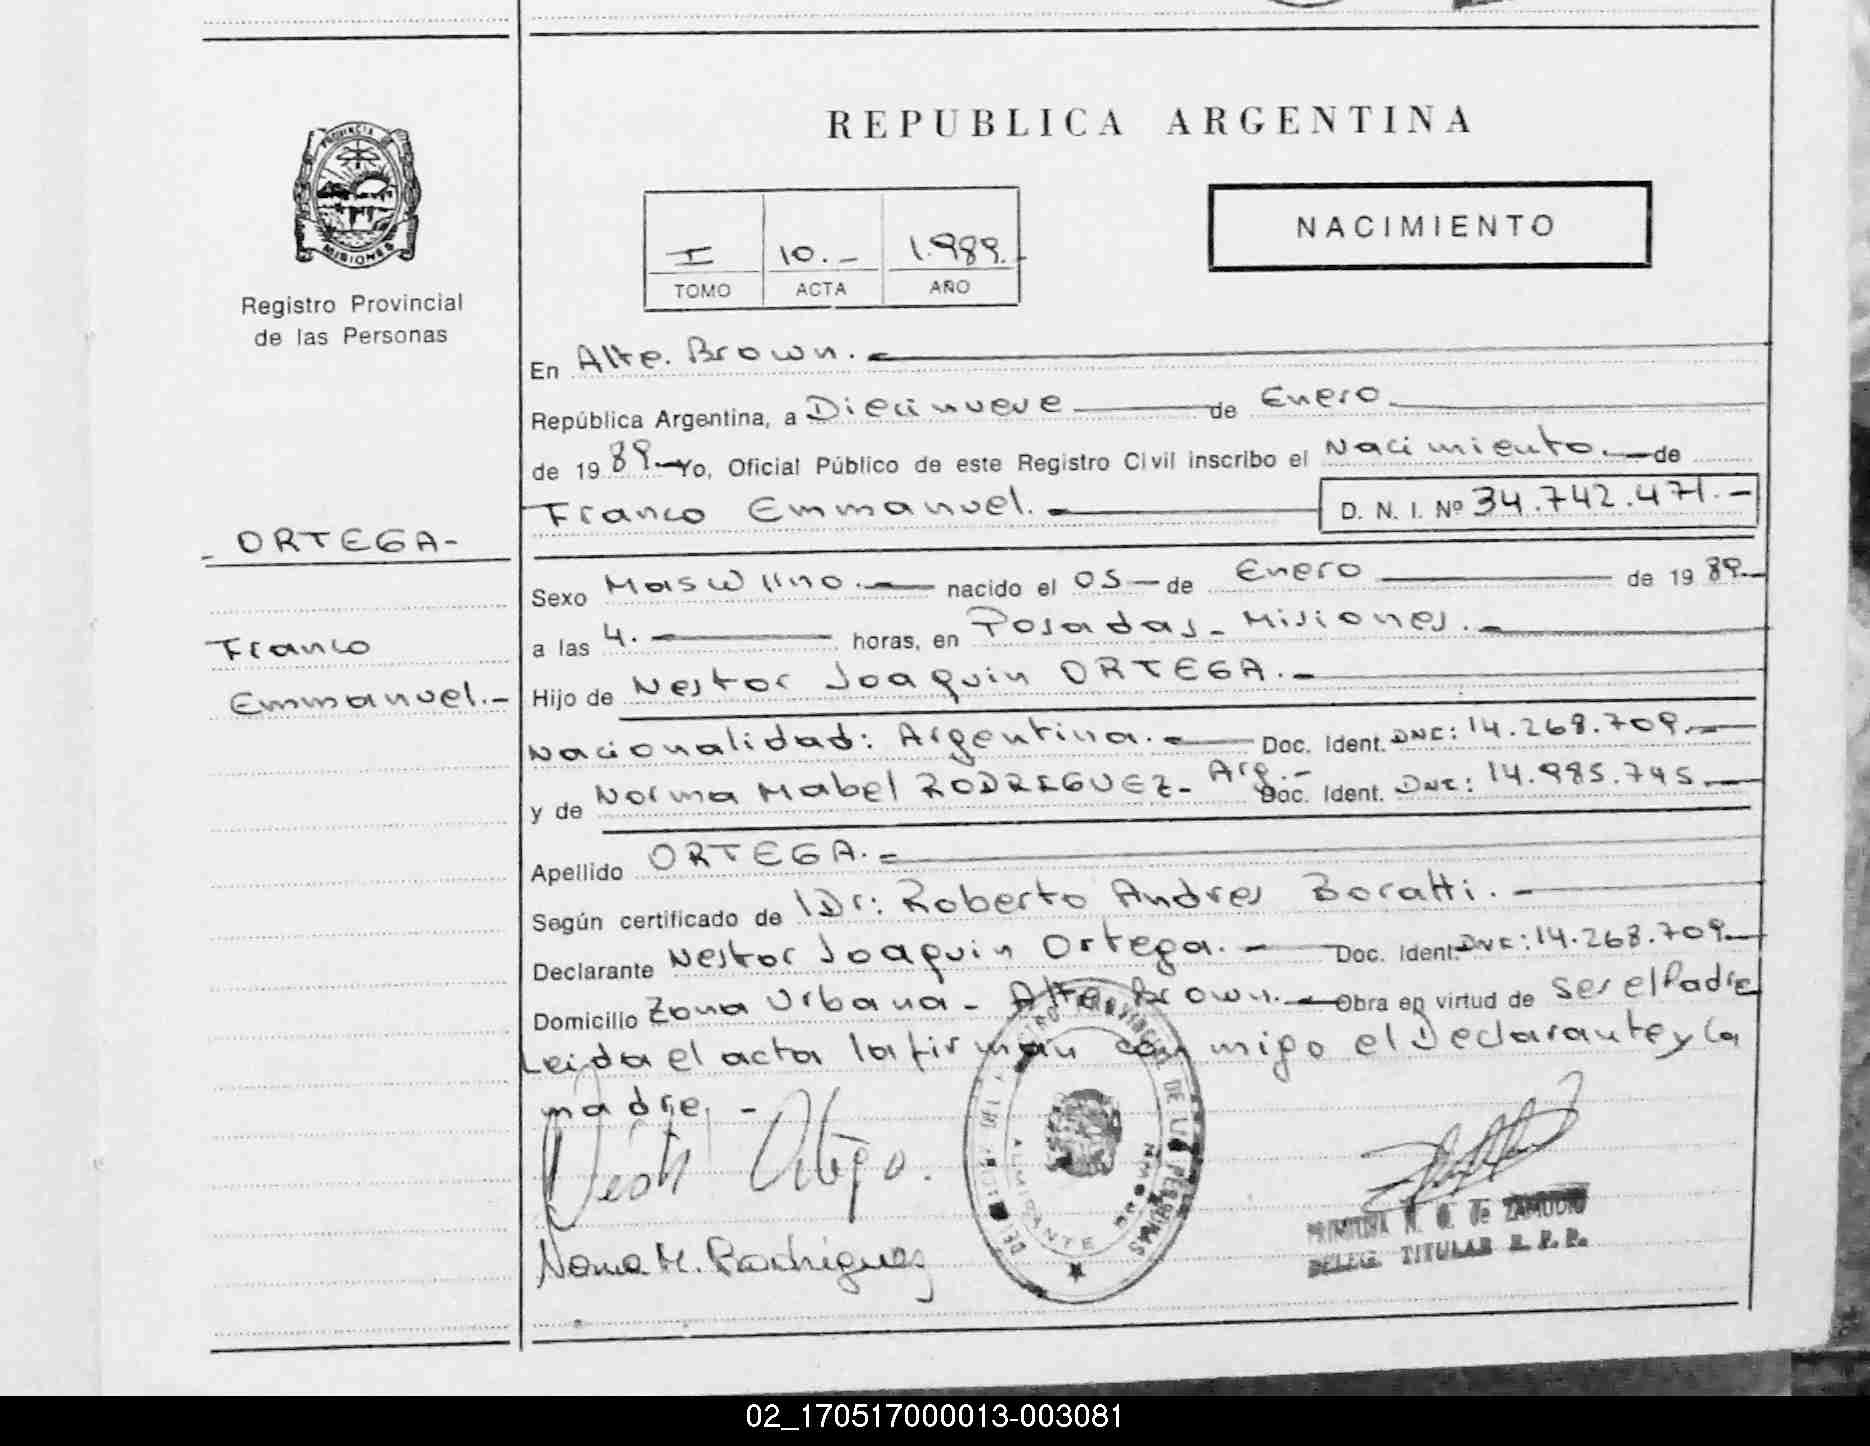 PROVINCIA
MISIONES
Registro Provincial
de las Personas
- ORTEGA-
Franco
Emmanuel.-
REPUBLICA ARGENTINA
I 10.- 1.989.
TOMO ACTA AÑO
NACIMIENTO
En Alte. Brown.
República Argentina, a Diecinueve de Enero
de 19 89.- Yo, Oficial Público de este Registro Civil inscribo el Nacimiento.- de
Franco Emmanuel. D. N. I. Nº 34.742.471.-
Sexo Masculino.- nacido el 05 - de Enero de 19 89.-
a las 4. horas, en Posadas - Misiones.-
Hijo de Nestor Joaquin ORTEGA.-
Nacionalidad: Argentina.- Doc. Ident. DNI: 14.268.709.-
y de Norma Mabel RODRIGUEZ- Arg.- Doc. Ident. DNI: 14.985.745.-
Apellido ORTEGA.-
Según certificado de Dr: Roberto Andres Boratti.-
Declarante Nestor Joaquin Ortega.- Doc. Ident. DNI: 14.268.709.-
Domicilio Zona Urbana - Alte. Brown.- Obra en virtud de Ser el Padre
Leida el acta la firman con migo el Declarante y la
madre.-
Nestor Ortega.
Norma M. Rodriguez
PROVINCIAL DE LAS PERSONAS
ALMIRANTE BROWN
de ZAMUDIO
DELEG. TITULAR R. P. P.
02_170517000013-003081